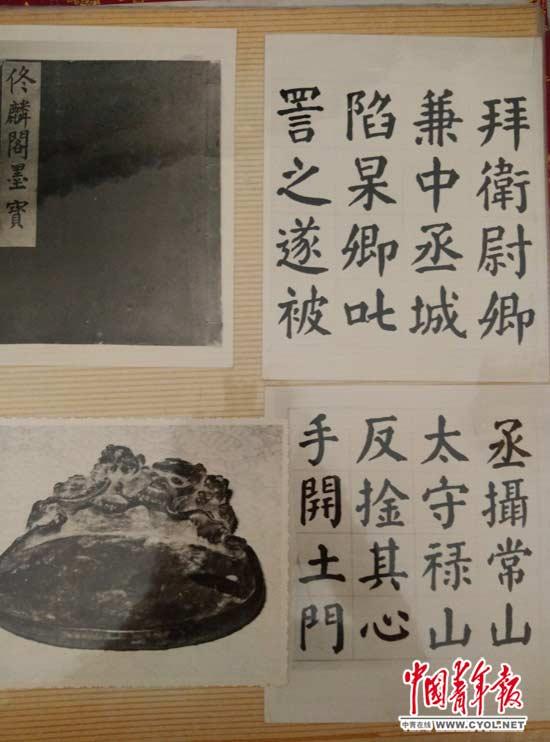 佟麟閣墨寶
拜衛尉卿
兼中丞城
陷杲卿叱
詈之遂被
丞攝常山
太守禄山
反捦其心
手開土門
中國青年報
中青在线 WWW.CYOL.NET